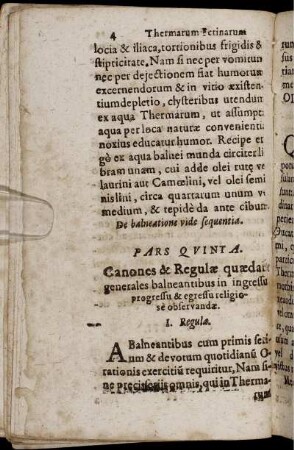 4 Thermarum Petinarum
locia & iliaca, tortionibus frigidis &
stipticitate, Nam si nec per vomitun
nec per dejectionem fiat humorum
excernendorum & in vitio æxisten-
tium depletio, clysteribus utendum
ex aqua Thermarum, ut assumpt
aqua per loca naturæ convenienti
noxius educatur humor. Recipe er
gò ex aqua balnei munda circiter li
bram unam, cui adde olei rutę ve
laurini aut Camœlini, vel olei semi
nis lini, circa quartarum unum v
medium, & tepidè da ante cibum
De balneatione vide sequentia.
PARS QVINTA.
Canones & Regulæ quædam
generales balneantibus in ingressu
progressu & egressu religio-
sè observandæ.
I. Regula.
A Balneantibus cum primis seri-
um & devotum quotidianũ O-
rationis exercitiũ requiritur, Nam si-
ne precibus is omnis, qui in Therma-
rum